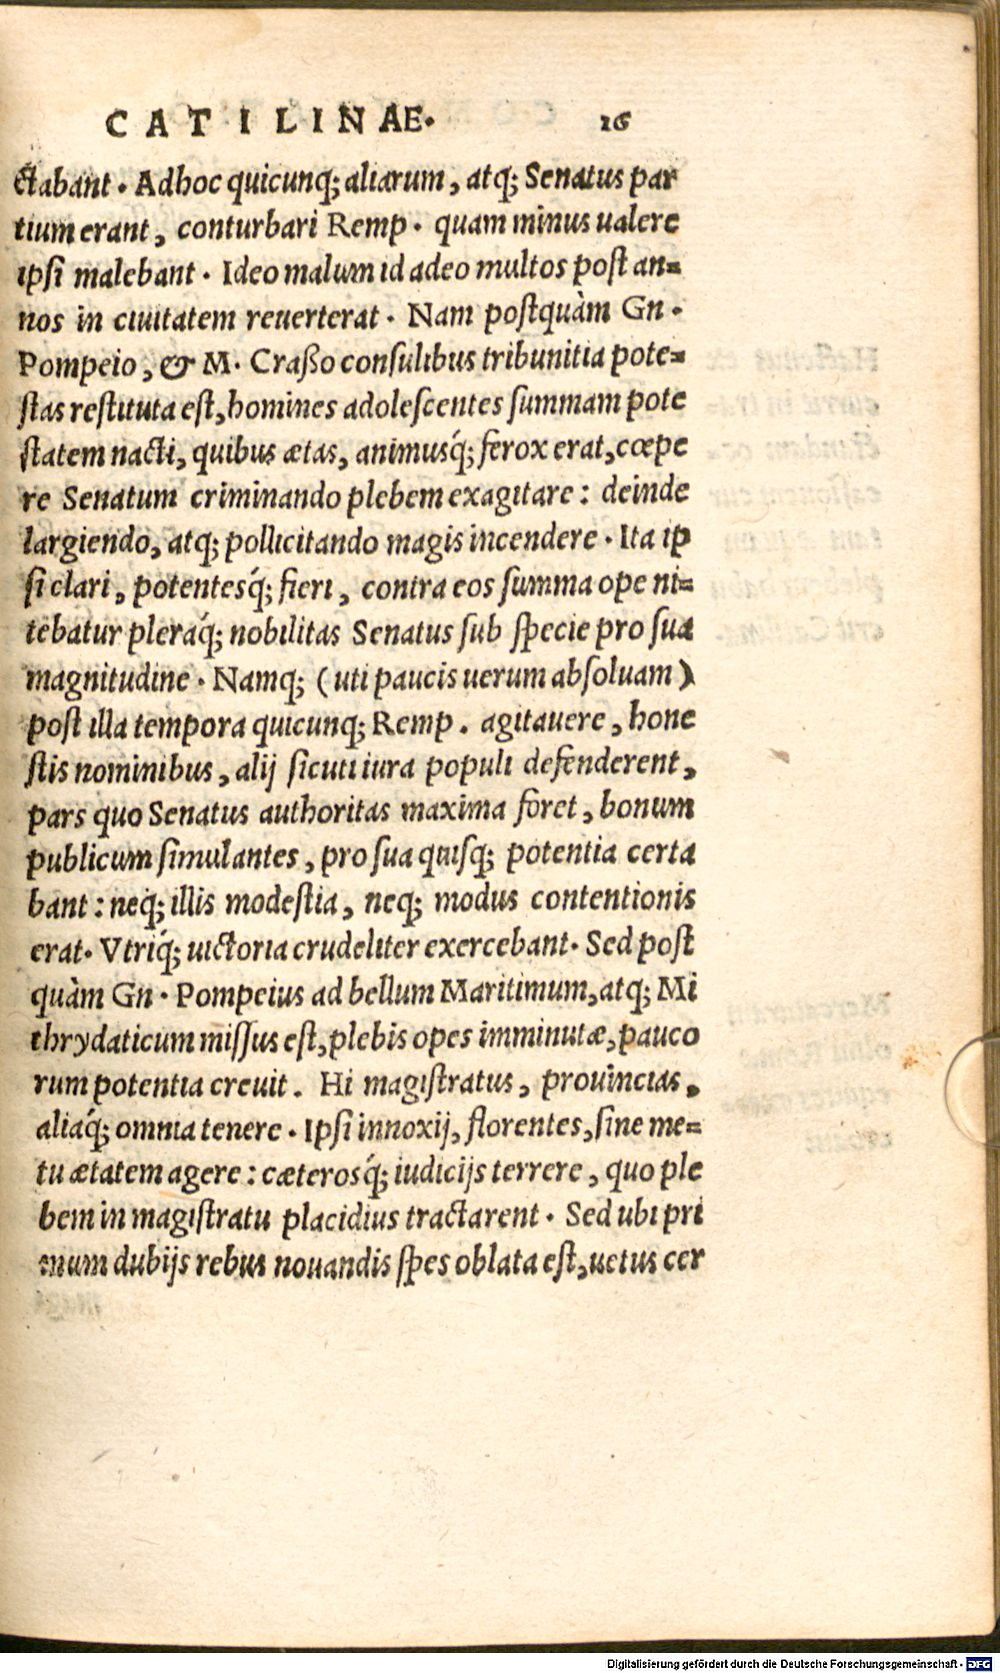 CATILINAE. 16
ctabant. Adhoc quicunq; aliarum, atq; Senatus par
tium erant, conturbari Remp. quam minus ualere
ipſi malebant. Ideo malum id adeo multos poſt an=
nos in ciuitatem reuerterat. Nam poſtquàm Gn.
Pompeio, & M. Craßo conſulibus tribunitia pote=
ſtas reſtituta eſt, homines adoleſcentes ſummam pote
ſtatem nacti, quibus ætas, animusq́; ferox erat, cœpe
re Senatum criminando plebem exagitare: deinde
largiendo, atq; pollicitando magis incendere. Ita ip
ſi clari, potentesq́; fieri, contra eos ſumma ope ni=
tebatur pleraq́; nobilitas Senatus ſub ſpecie pro ſua
magnitudine. Namq; (uti paucis uerum abſoluam)
poſt illa tempora quicunq; Remp. agitauere, hone
ſtis nominibus, alij ſicuti iura populi defenderent,
pars quo Senatus authoritas maxima foret, bonum
publicum ſimulantes, pro ſua quiſq; potentia certa
bant: neq; illis modeſtia, neq; modus contentionis
erat. Vtriq́; uictoria crudeliter exercebant. Sed poſt
quàm Gn. Pompeius ad bellum Maritimum, atq; Mi
thrydaticum miſſus eſt, plebis opes imminutæ, pauco
rum potentia creuit. Hi magiſtratus, prouincias,
aliaq́; omnia tenere. Ipſi innoxij, florentes, ſine me=
tu ætatem agere: cæterosq́; iudicijs terrere, quo ple
bem in magiſtratu placidius tractarent. Sed ubi pri
mum dubijs rebus nouandis ſpes oblata eſt, uetus cer
Digitalisierung gefördert durch die Deutsche Forschungsgemeinschaft - DFG